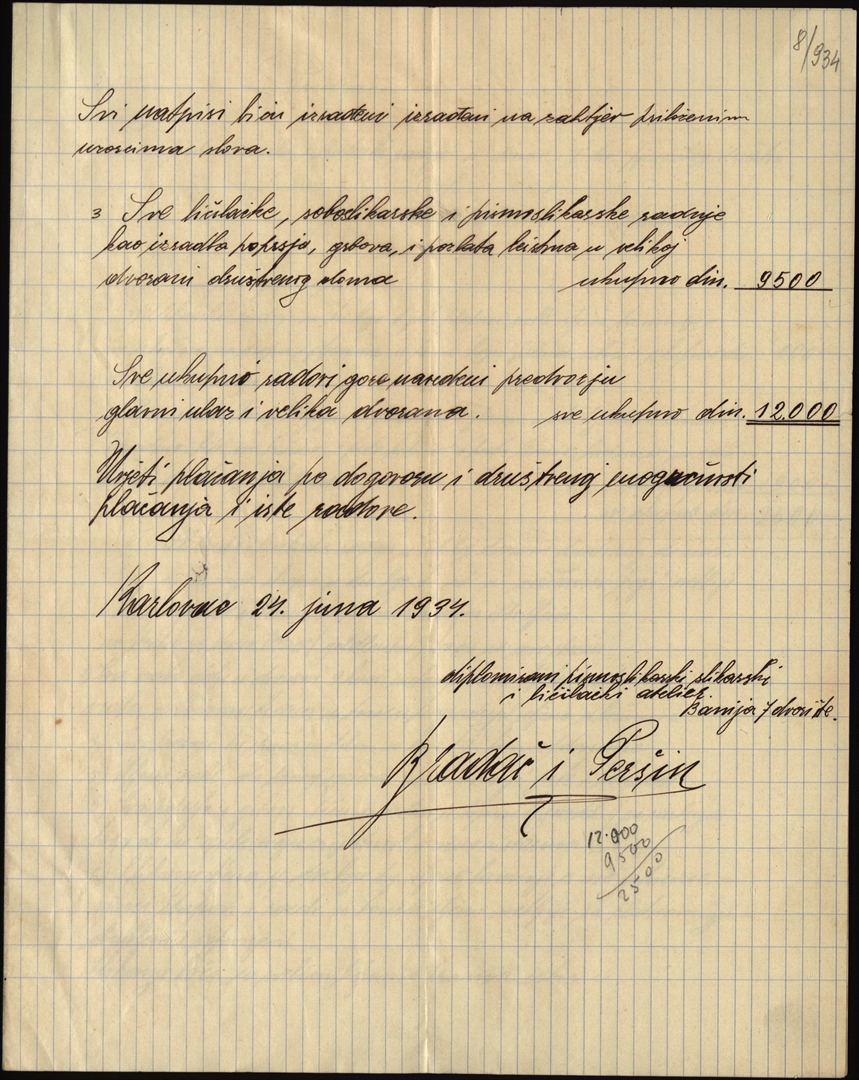 8/934
Svi natpisi biću izrađeni izrađeni na zahtjev priloženim
uzorcima slova.
3 Sve ličilačke, soboslikarske i pismoslikarske radnje
kao izradba poprsja, grbova, i pozlata u velikoj
dvorani društvenog doma ukupno din. 9500
Sve ukupno radovi gore navedeni predvorju
glavni ulaz i velika dvorana. sve ukupno din. 12.000
Uvjeti plaćanja po dogovoru i društvenoj mogućnosti
plaćanja i iste radove.
Karlovac 24. juna 1934.
diplomirani pismoslikarski slikarski
i ličilački atelier.
Banija 7 dvorište.
Bradač i Peršin
12.000
9500
2500